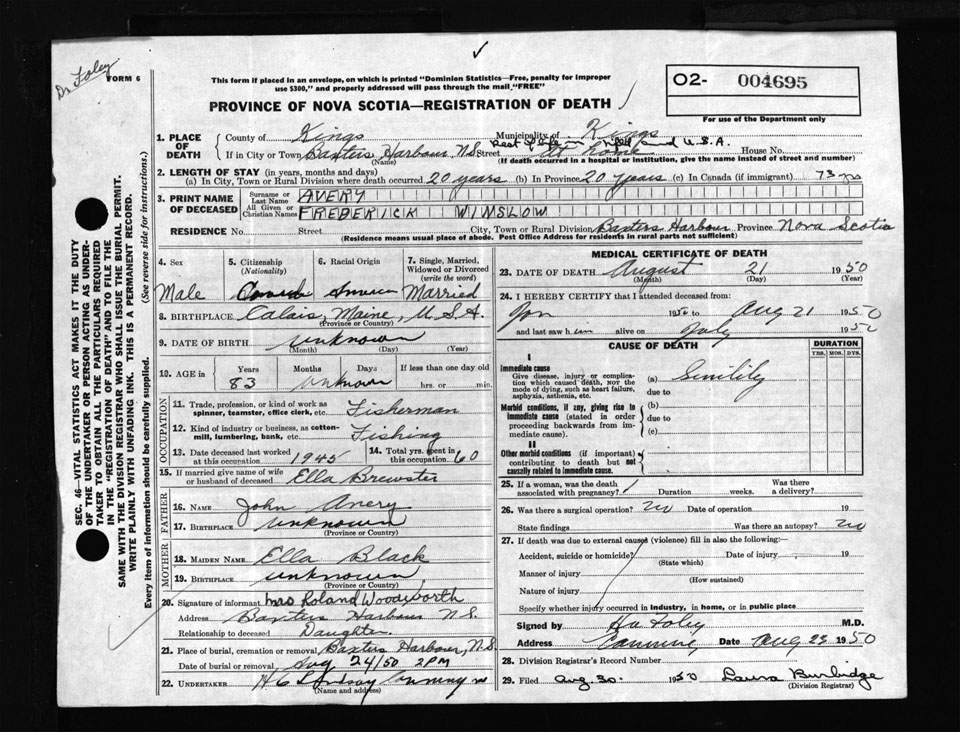 Dr Foley
FORM 6
This form if placed in an envelope, on which is printed "Dominion Statistics—Free, penalty for improper
use $300," and properly addressed will pass through the mail "FREE"
PROVINCE OF NOVA SCOTIA—REGISTRATION OF DEATH
O2- 004695
For use of the Department only
1. PLACE OF DEATH
County of Kings Municipality of Kings
Rest of life in and U.S.A.
If in City or Town Baxters Harbour, N.S. Street At home House No.
(Name) (If death occurred in a hospital or institution, give the name instead of street and number)
2. LENGTH OF STAY (in years, months and days)
(a) In City, Town or Rural Division where death occurred 20 years (b) In Province 20 years (c) In Canada (if immigrant) 73 yrs
3. PRINT NAME OF DECEASED
Surname or Last Name AVERY
All Given or Christian Names FREDERICK WINSLOW
RESIDENCE No. Street City, Town or Rural Division Baxters Harbour Province Nova Scotia
(Residence means usual place of abode. Post Office Address for residents in rural parts not sufficient)
4. Sex 5. Citizenship (Nationality) 6. Racial Origin 7. Single, Married, Widowed or Divorced (write the word)
Male Married
8. BIRTHPLACE Calais, Maine, U.S.A.
(Province or Country)
9. DATE OF BIRTH unknown
(Month) (Day) (Year)
10. AGE in Years Months Days If less than one day old
83 unknown hrs. or min.
OCCUPATION
11. Trade, profession, or kind of work as
spinner, teamster, office clerk, etc. Fisherman
12. Kind of industry or business, as cotton-
mill, lumbering, bank, etc. Fishing
13. Date deceased last worked at this occupation 1945 14. Total yrs. spent in this occupation 60
15. If married give name of wife
or husband of deceased Ella Brewster
FATHER
16. Name John Avery
17. BIRTHPLACE unknown
(Province or Country)
MOTHER
18. MAIDEN NAME Ella Black
19. BIRTHPLACE unknown
(Province or Country)
20. Signature of informant Mrs Roland Woodworth
Address Baxters Harbour N.S.
Relationship to deceased Daughter
21. Place of burial, cremation or removal Baxters Harbour, N.S.
Date of burial or removal Aug 24/50 2PM
22. UNDERTAKER Lindsay
(Name and address)
MEDICAL CERTIFICATE OF DEATH
23. DATE OF DEATH August 21 1950
(Month) (Day) (Year)
24. I HEREBY CERTIFY that I attended deceased from
Jan 1950 to Aug 21 1950
and last saw him alive on July 1950
CAUSE OF DEATH DURATION
YRS. MOS. DYS.
I
Immediate cause
Give disease, injury or complica-
tion which caused death, NOT the
mode of dying, such as heart failure,
asphyxia, asthenia, etc.
(a) Senility
due to
Morbid conditions, if any, giving rise to
immediate cause (stated in order
proceeding backwards from im-
mediate cause).
(b)
due to
(c)
II
Other morbid conditions (if important)
contributing to death but not
causally related to immediate cause.
25. If a woman, was the death Was there
associated with pregnancy? Duration weeks. a delivery?
26. Was there a surgical operation? no Date of operation 19
State findings Was there an autopsy? no
27. If death was due to external causes (violence) fill in also the following:
Accident, suicide or homicide? Date of injury 19
(State which)
Manner of injury
(How sustained)
Nature of injury
Specify whether injury occurred in industry, in home, or in public place
Signed by Foley M.D.
Address Canning Date Aug 23 1950
28. Division Registrar's Record Number
29. Filed Aug 30. 1950 Laura Burbidge
(Division Registrar)
SEC. 46—VITAL STATISTICS ACT MAKES IT THE DUTY
OF THE UNDERTAKER OR PERSON ACTING AS UNDER-
TAKER TO OBTAIN ALL THE PARTICULARS REQUIRED
IN THE "REGISTRATION OF DEATH" AND TO FILE THE
SAME WITH THE DIVISION REGISTRAR WHO SHALL ISSUE THE BURIAL PERMIT.
WRITE PLAINLY WITH UNFADING INK. THIS IS A PERMANENT RECORD.
Every item of information should be carefully supplied. (See reverse side for instructions.)